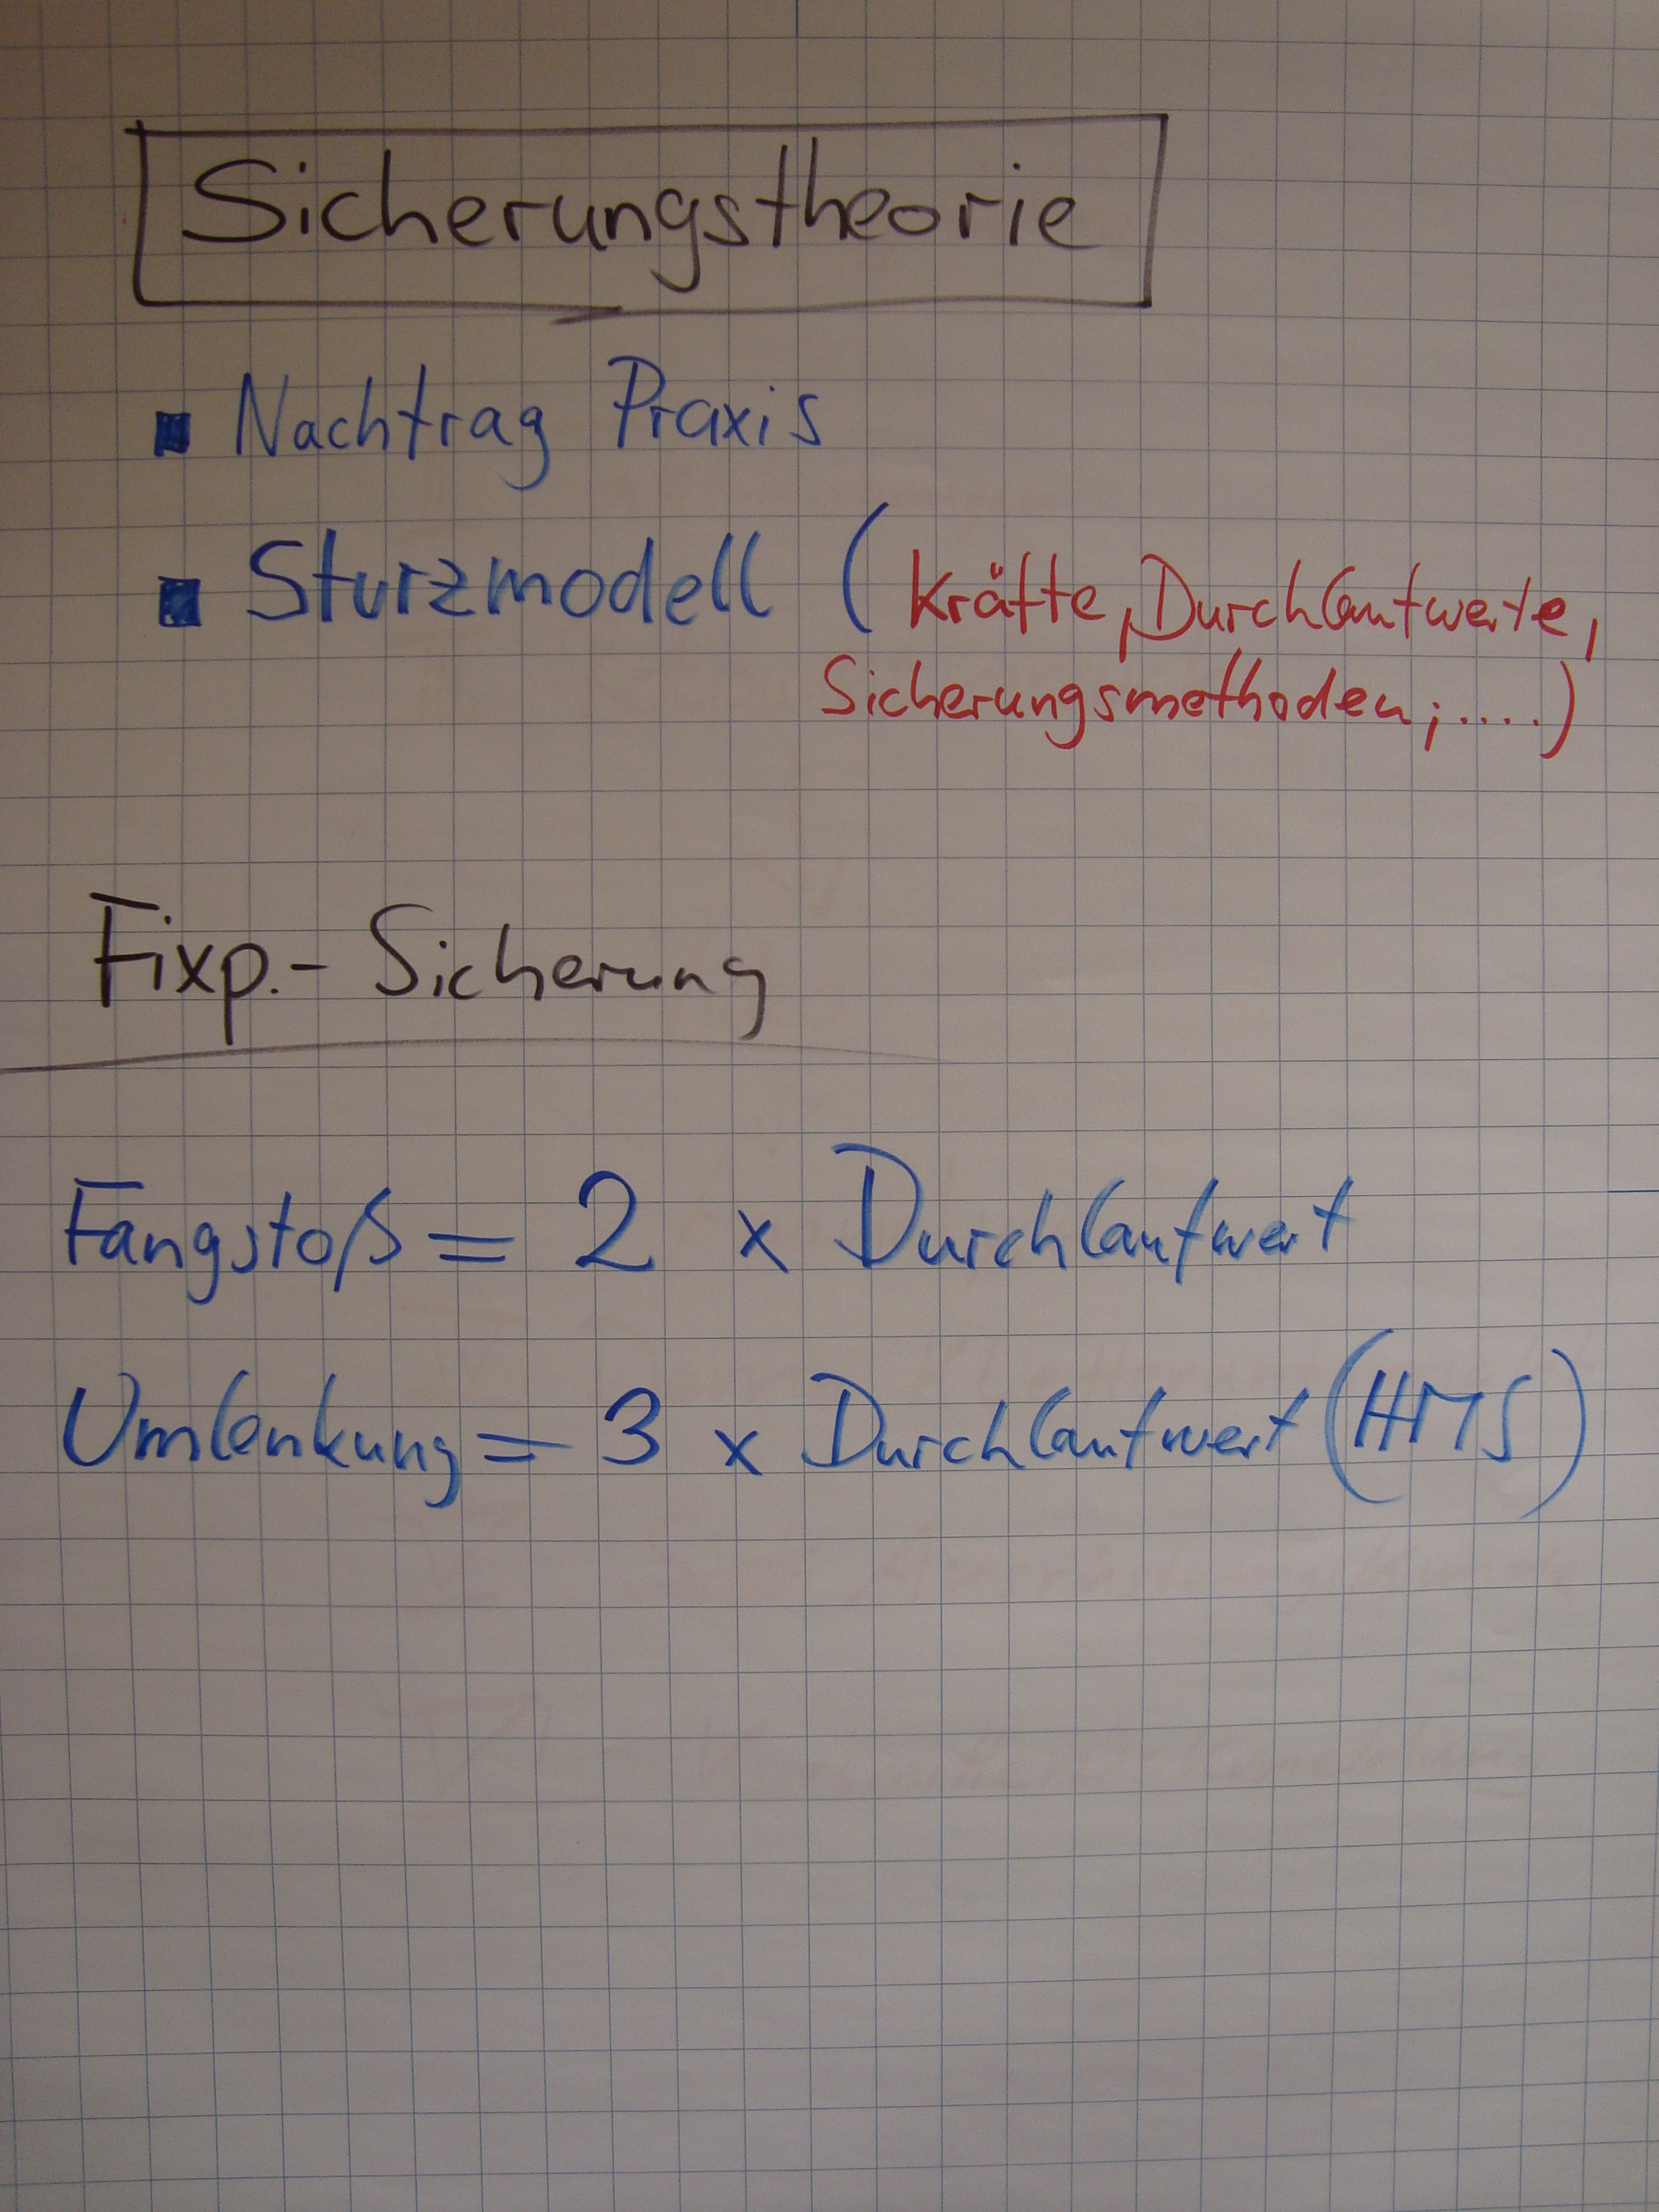 Sicherungstheorie
▪ Nachtrag Praxis
▪ Sturzmodell (Kräfte, Durchlaufwerte,
Sicherungsmethoden, ....)
Fixp.- Sicherung
Fangstoß = 2 x Durchlaufwert
Umlenkung = 3 x Durchlaufwert (HMS)